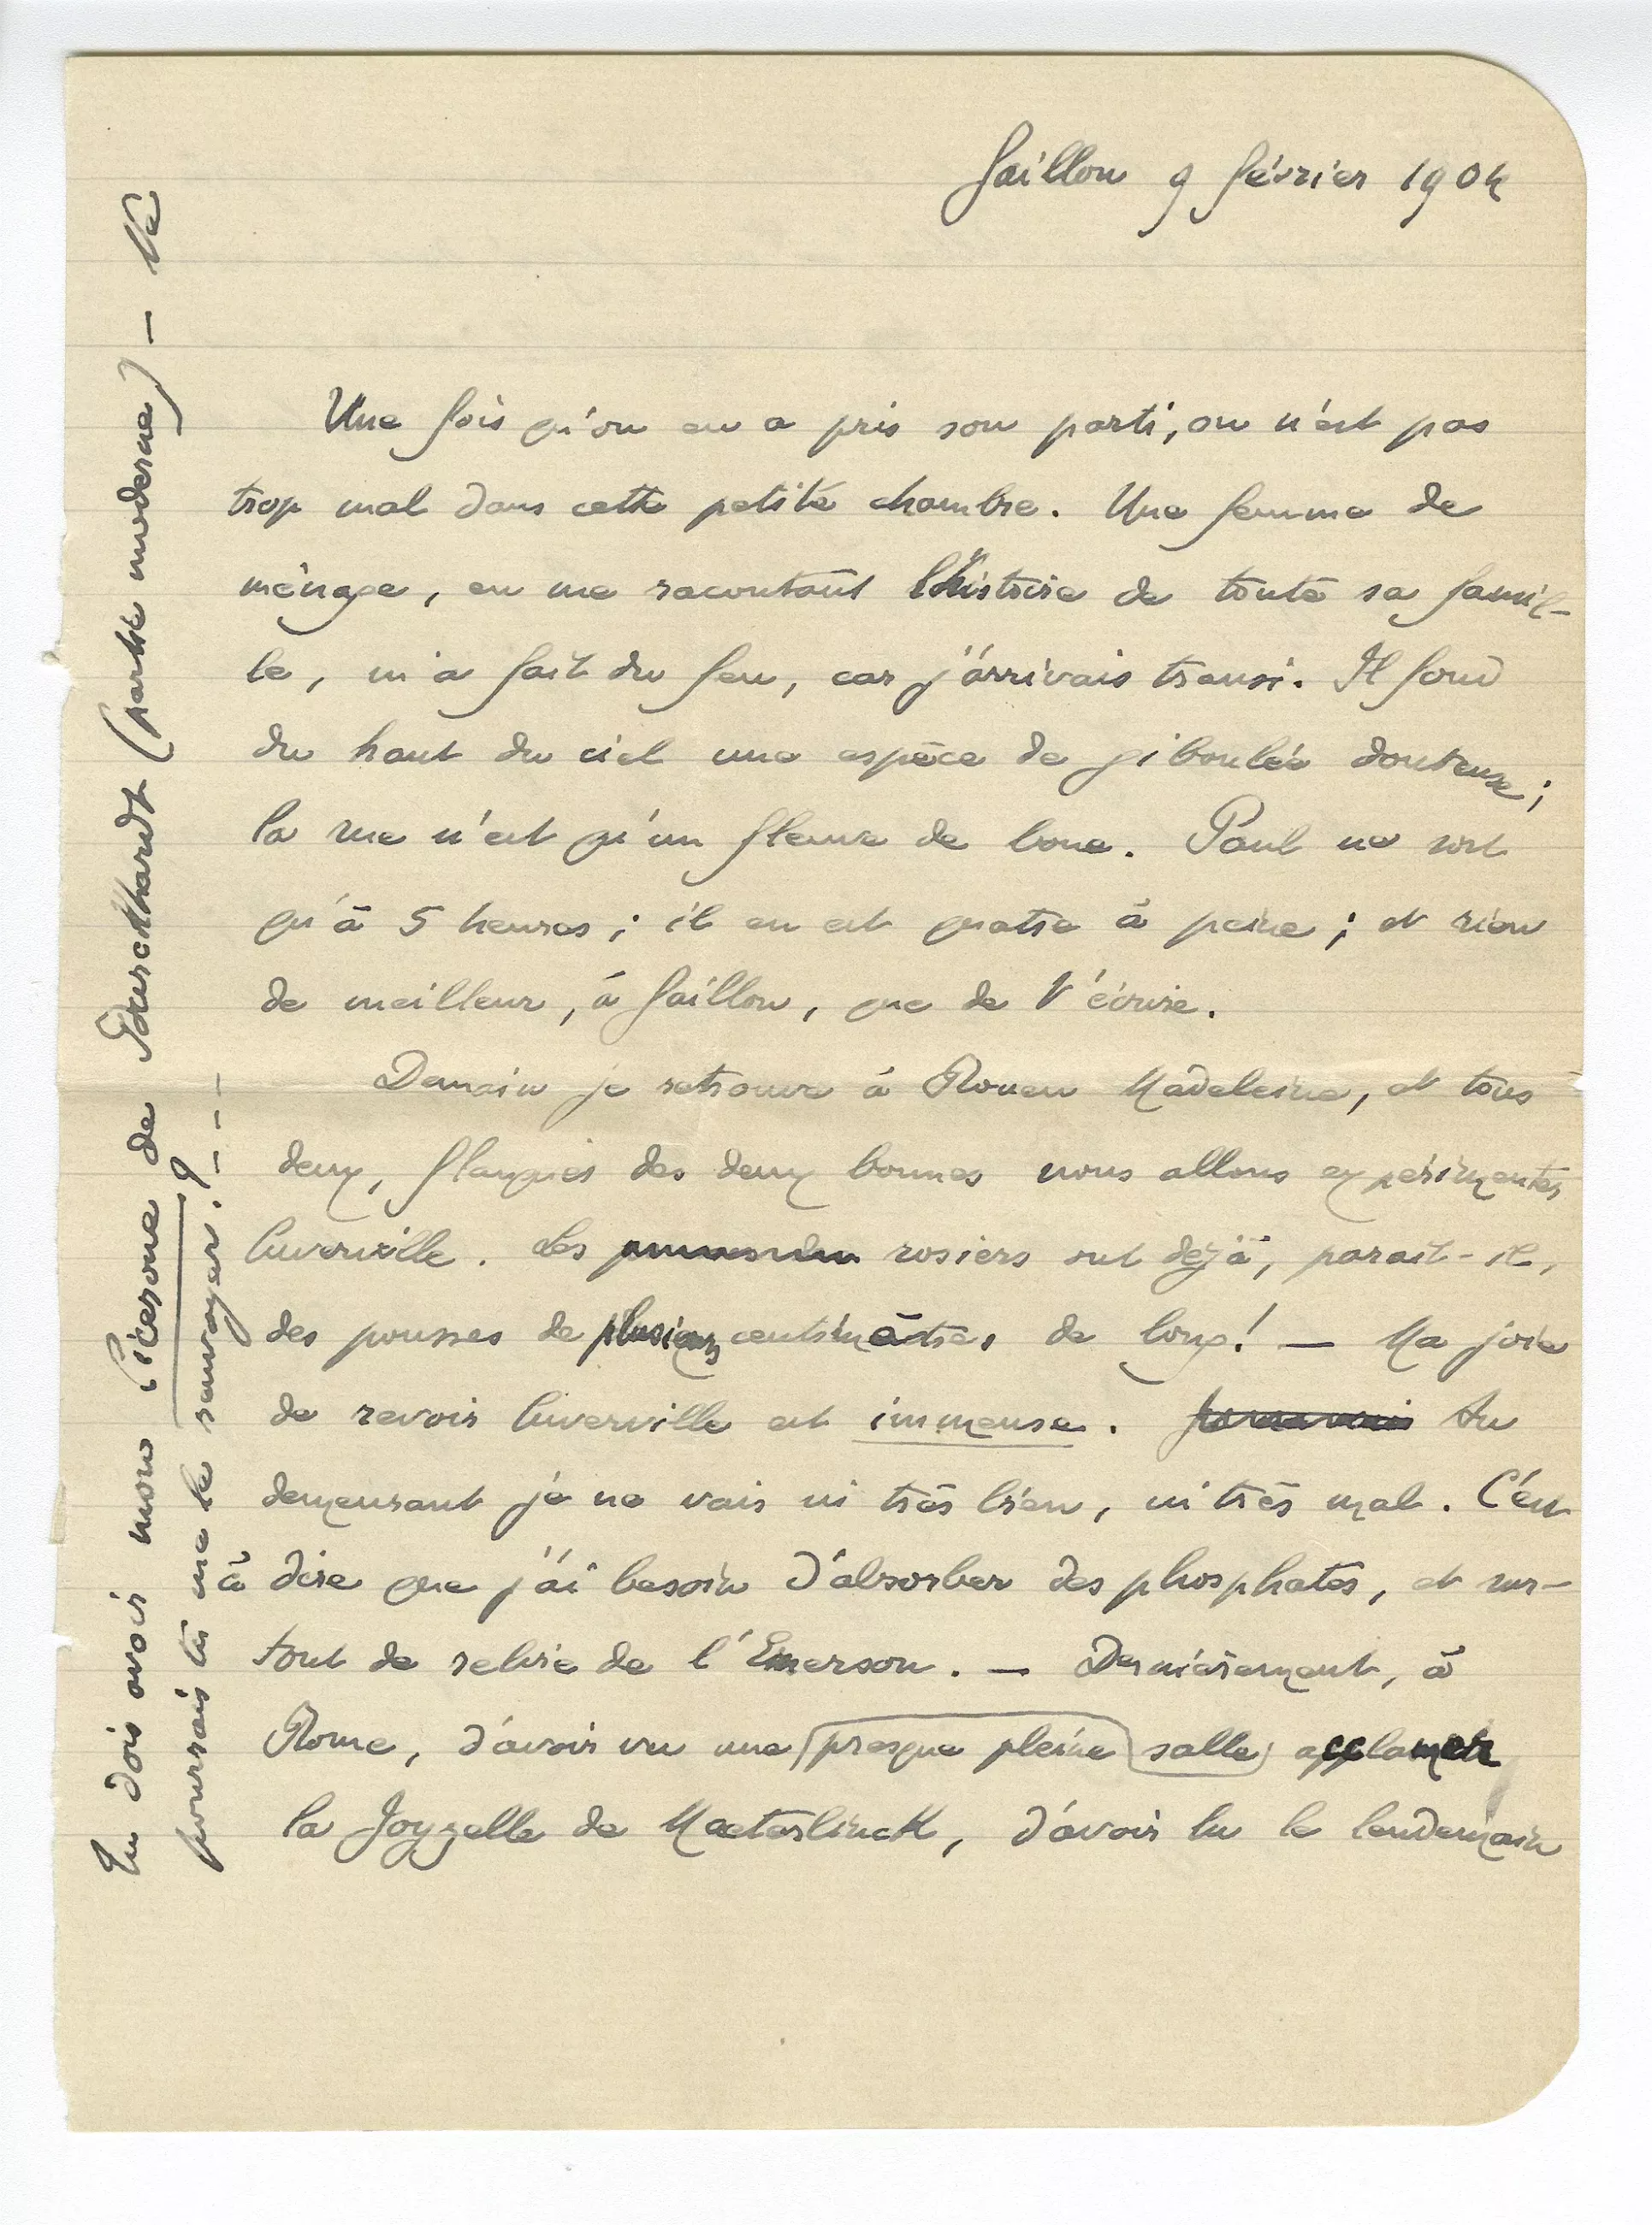 Gaillon 9 février 1904
Une fois qu'on en a pris son parti, on n'est pas
trop mal dans cette petite chambre. Une femme de
ménage, en me racontant l'histoire de toute sa famil-
le, m'a fait du feu, car j'arrivais transi. Il fond
du haut du ciel une espèce de giboulée douteuse ;
la rue n'est qu'un fleuve de boue. Paul ne sort
qu'à 5 heures ; il en est quatre à peine ; et rien
de meilleur, à Gaillon, que de t'écrire.
Demain je retrouve à Rouen Madeleine, et tous
deux, flanqués des deux bonnes nous allons expérimenter
Cuverville. Les rosiers ont déjà, parait-il,
des pousses de plusieurs centimètres de long! — Ma joie
de revoir Cuverville est immense. Au
demeurant je ne vais ni très bien, ni très mal. C'est
à dire que j'ai besoin d'absorber des phosphates, et sur-
tout de relire de l'Emerson. — Dernièrement, à
Rome, d'avoir vu une presque pleine salle acclamer
la Joyzelle de Maeterlinck, d'avoir lu le lendemain
Tu dois avoir mon Cicerone de Burckhardt (partie moderne) — Ne
pourrais tu me le renvoyer. ? - - -